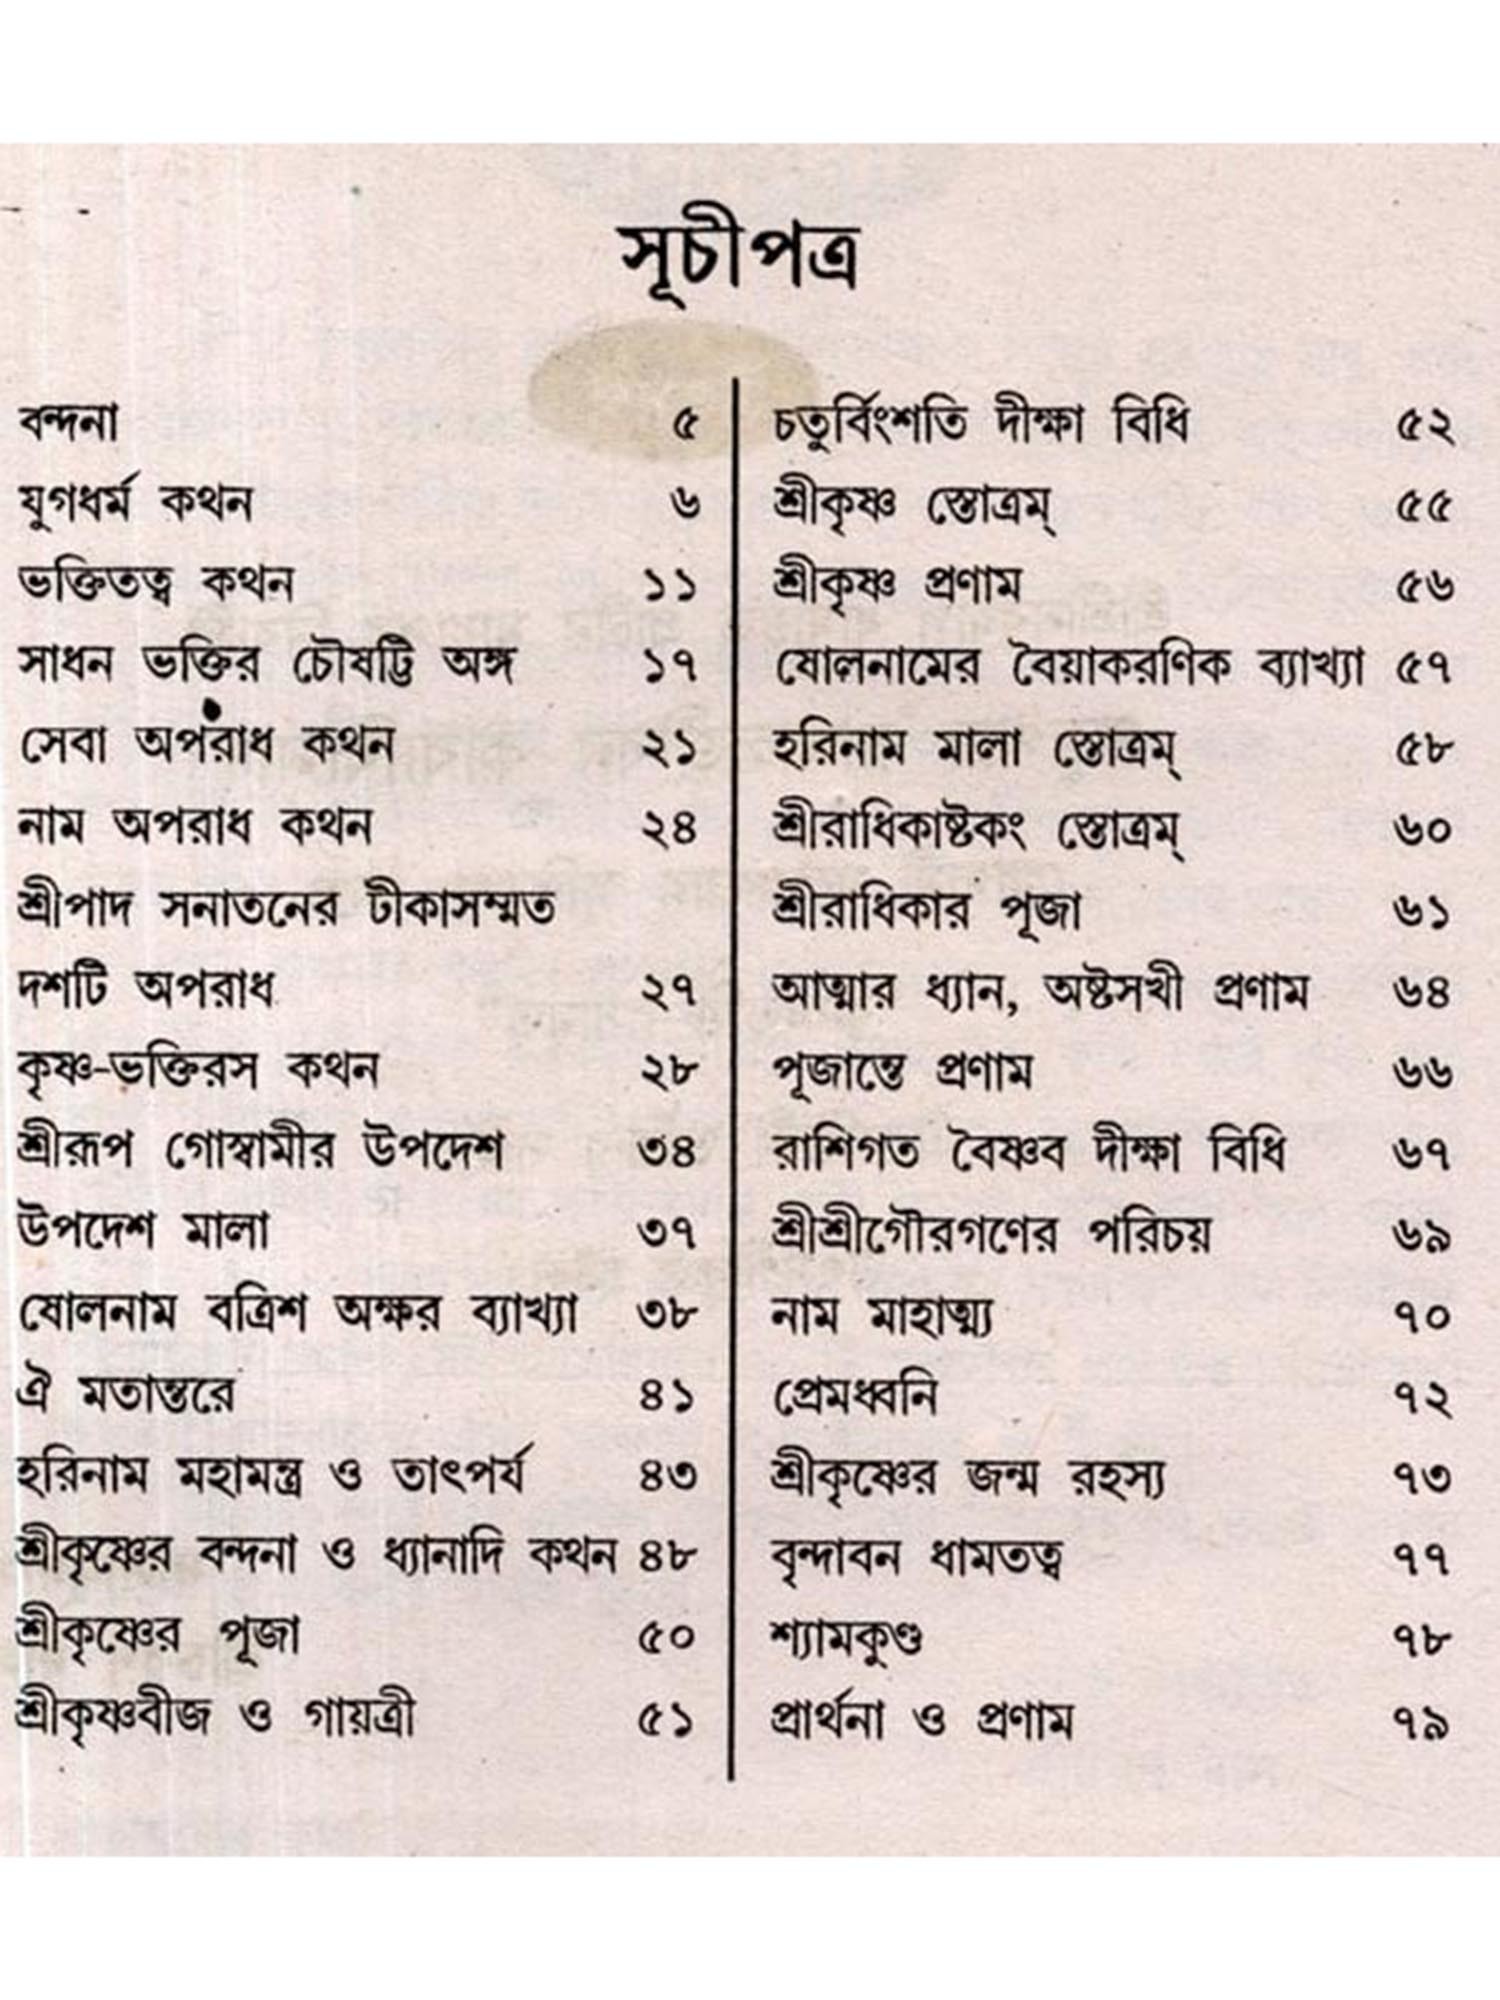 সূচীপত্র
বন্দনা ৫
যুগধর্ম কথন ৬
ভক্তিতত্ব কথন ১১
সাধন ভক্তির চৌষট্টি অঙ্গ ১৭
সেবা অপরাধ কথন ২১
নাম অপরাধ কথন ২৪
শ্রীপাদ সনাতনের টীকাসম্মত
দশটি অপরাধ ২৭
কৃষ্ণ-ভক্তিরস কথন ২৮
শ্রীরূপ গোস্বামীর উপদেশ ৩৪
উপদেশ মালা ৩৭
ষোলনাম বত্রিশ অক্ষর ব্যাখ্যা ৩৮
ঐ মতান্তরে ৪১
হরিনাম মহামন্ত্র ও তাৎপর্য ৪৩
শ্রীকৃষ্ণের বন্দনা ও ধ্যানাদি কথন ৪৮
শ্রীকৃষ্ণের পূজা ৫০
শ্রীকৃষ্ণবীজ ও গায়ত্রী ৫১
চতুর্বিংশতি দীক্ষা বিধি ৫২
শ্রীকৃষ্ণ স্তোত্রম্ ৫৫
শ্রীকৃষ্ণ প্রণাম ৫৬
ষোলনামের বৈয়াকরণিক ব্যাখ্যা ৫৭
হরিনাম মালা স্তোত্রম্ ৫৮
শ্রীরাধিকাষ্টকং স্তোত্রম্ ৬০
শ্রীরাধিকার পূজা ৬১
আত্মার ধ্যান, অষ্টসখী প্রণাম ৬৪
পূজান্তে প্রণাম ৬৬
রাশিগত বৈষ্ণব দীক্ষা বিধি ৬৭
শ্রীশ্রীগৌরগণের পরিচয় ৬৯
নাম মাহাত্ম্য ৭০
প্রেমধ্বনি ৭২
শ্রীকৃষ্ণের জন্ম রহস্য ৭৩
বৃন্দাবন ধামতত্ব ৭৭
শ্যামকুণ্ড ৭৮
প্রার্থনা ও প্রণাম ৭৯